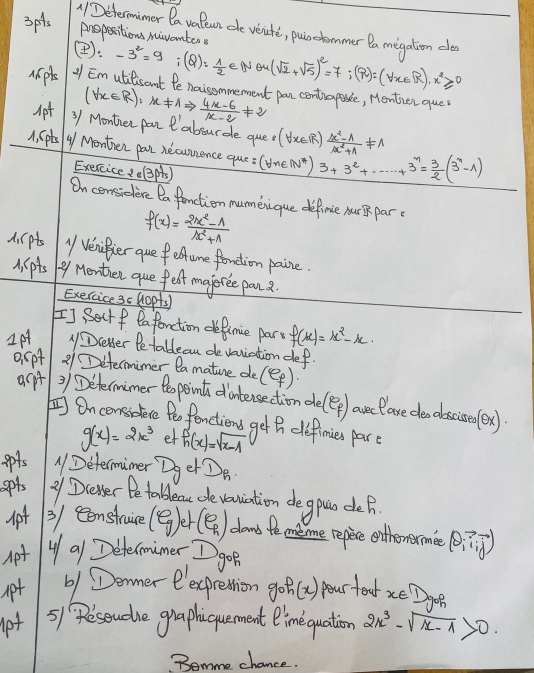 3pts 1/ Déterminer la valeur de vérité, puis donner la négation des
propositions suivantes :
(P): -3² = 9 ; (Q): 1/2 ∈ ℕ ou (√2 + √5)² = 7 ; (R): (∀x∈ℝ), x² ≥ 0
1,5pts 2/ En utilisant le raisonnement par contraposée, Montrer que :
(∀x∈ℝ): x ≠ 1 ⇒ (4x-6)/(x-2) ≠ 2
1pt 3/ Montrer par l'absurde que : (∀x∈ℝ) (x²-1)/(x²+1) ≠ 1
1,5pts 4/ Montrer par récurrence que : (∀n∈ℕ*) 3 + 3² + ...... + 3ⁿ = 3/2 (3ⁿ-1)
Exercice 2 : (3pts)
On considère la fonction numérique définie sur ℝ par :
f(x) = (2x²-1)/(x²+1)
1,5pts 1/ Vérifier que f est une fonction paire.
1,5pts 2/ Montrer que f est majorée par 2.
Exercice 3 : (10pts)
I] Soit f la fonction définie par : f(x) = x² - x.
1pt 1/ Dresser le tableau de variation de f.
0,5pt 2/ Déterminer la nature de (Cf).
0,5pt 3/ Déterminer les points d'intersection de (Cf) avec l'axe des abscisses (Ox).
II] On considère les fonctions g et h définies par :
g(x) = 2x³ et h(x) = √(x-1)
2pts 1/ Déterminer Dg et Dh.
2pts 2/ Dresser le tableau de variation de g puis de h.
1pt 3/ Construire (Cg) et (Ch) dans le même repère orthonormée (O, i, j)
1pt 4/ a) Déterminer Dgoh
1pt b) Donner l'expression goh(x) pour tout x∈Dgoh
1pt 5/ Résoudre graphiquement l'inéquation 2x³ - √(x-1) > 0.
Bonne chance.